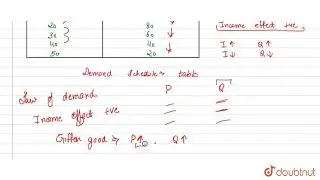 20 80
30 60
40 40
50 20
Income effect +ve
I↑ Q↑
I↓ Q↓
Demand Schedule → table
Law of demand P Q
Income effect +ve
Giffen good ⇒ P↑ Q↑
doubtnut